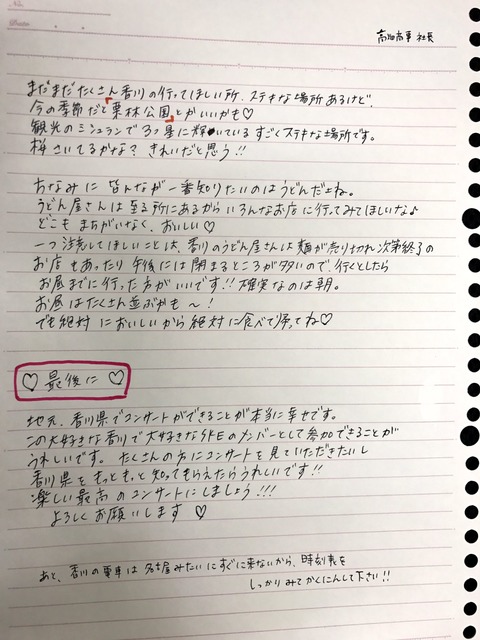 No.
Date
高畑商事 社長
まだまだたくさん香川の行ってほしい所、ステキな場所あるけど、
今の季節だと「栗林公園」とかいいかも♡
観光のミシュランで3つ星に輝いているすごくステキな場所です。
桜さいてるかな？きれいだと思う!!
ちなみに皆んなが一番知りたいのはうどんだよね。
うどん屋さんは至る所にあるからいろんなお店に行ってみてほしいな♪
どこもまちがいなく、おいしい♡
一つ注意してほしいことは、香川のうどん屋さんは麺が売り切れ次第終了の
お店もあったり午後には閉まるところが多いので、行くとしたら
お昼までに行った方がいいです!!確実なのは朝。
お昼はたくさん並ぶかも～!
でも絶対においしいから絶対に食べて帰ってね♡
♡最後に♡
地元、香川県でコンサートができることが本当に幸せです。
この大好きな香川で大好きなSKEのメンバーとして参加できることが
うれしいです。たくさんの方にコンサートを見ていただきたいし
香川県をもっともっと知ってもらえたらうれしいです!!
楽しい最高のコンサートにしましょう!!!
よろしくお願いします♡
あと、香川の電車は名古屋みたいにすぐに来ないから、時刻表を
しっかりみてかくにんして下さい!!